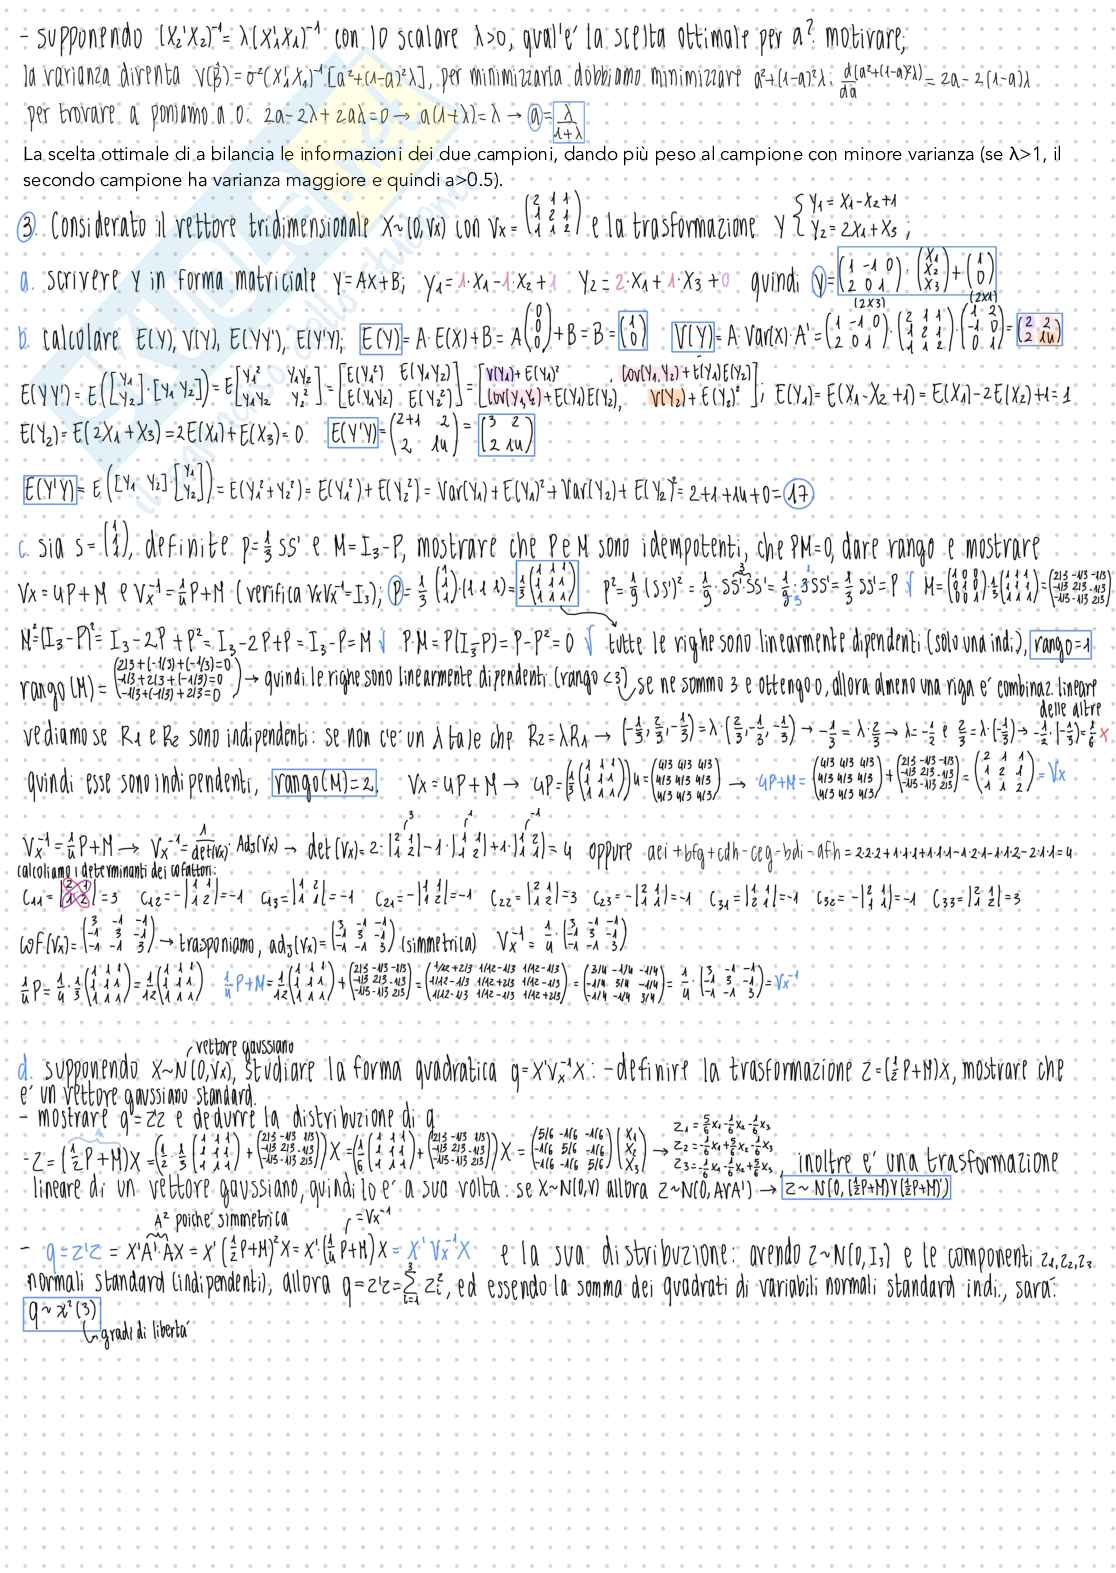 - supponendo (X₂'X₂)⁻¹ = λ(X₁'X₁)⁻¹ con lo scalare λ>0, qual'e' la scelta ottimale per a? motivare;
la varianza diventa V(β̂) = σ²(X₁'X₁)⁻¹[a²+(1-a)²λ], per minimizzarla dobbiamo minimizzare a²+(1-a)²λ: d(a²+(1-a)²λ)/da = 2a-2(1-a)λ
per trovare a poniamo a 0: 2a-2λ+2aλ=0 → a(1+λ)=λ → a = λ/(1+λ)
La scelta ottimale di a bilancia le informazioni dei due campioni, dando più peso al campione con minore varianza (se λ>1, il
secondo campione ha varianza maggiore e quindi a>0.5).
3. Considerato il vettore tridimensionale X~(0,Vx) con Vx = (2 1 1; 1 2 1; 1 1 2) e la trasformazione Y {Y₁ = X₁-X₂+1; Y₂ = 2X₁+X₃;
a. scrivere Y in forma matriciale Y=AX+B; Y₁=1·X₁-1·X₂+1 Y₂=2·X₁+1·X₃+0 quindi Y = (1 -1 0; 2 0 1)·(X₁; X₂; X₃)+(1; 0)
(2x3) (2x1)
b. calcolare E(Y), V(Y), E(YY'), E(Y'Y); E(Y) = A·E(X)+B = A(0; 0; 0)+B = B = (1; 0) V(Y) = A·Var(X)·A' = (1 -1 0; 2 0 1)·(2 1 1; 1 2 1; 1 1 2)·(1 2; -1 0; 0 1) = (2 2; 2 14)
E(YY') = E([Y₁; Y₂]·[Y₁ Y₂]) = E[Y₁² Y₁Y₂; Y₁Y₂ Y₂²] = [E(Y₁²) E(Y₁Y₂); E(Y₁Y₂) E(Y₂²)] = [V(Y₁)+E(Y₁)² , Cov(Y₁,Y₂)+E(Y₁)E(Y₂); Cov(Y₁,Y₂)+E(Y₁)E(Y₂), V(Y₂)+E(Y₂)²]; E(Y₁)=E(X₁-X₂+1)=E(X₁)-2E(X₂)+1=1
E(Y₂)=E(2X₁+X₃)=2E(X₁)+E(X₃)=0 E(Y'Y)=(2+1 2; 2 14) = (3 2; 2 14)
E(Y'Y) = E([Y₁ Y₂][Y₁; Y₂]) = E(Y₁²+Y₂²) = E(Y₁²)+E(Y₂²) = Var(Y₁)+E(Y₁)²+Var(Y₂)+E(Y₂)² = 2+1+14+0 = 17
c. sia s=(1; 1; 1), definite P=1/3 ss' e M=I₃-P, mostrare che P e M sono idempotenti, che PM=0, dare rango e mostrare
Vx=4P+M e Vx⁻¹=1/4P+M (verifica VxVx⁻¹=I₃); P=1/3(1; 1; 1)·(1 1 1)=1/3(1 1 1; 1 1 1; 1 1 1) P²=1/9(ss')²=1/9·ss'ss'=1/9·3ss'=1/3 ss'=P √ M=(1 0 0; 0 1 0; 0 0 1)-1/3(1 1 1; 1 1 1; 1 1 1)=(2/3 -1/3 -1/3; -1/3 2/3 -1/3; -1/3 -1/3 2/3)
M²=(I₃-P)²=I₃-2P+P²=I₃-2P+P=I₃-P=M √ P·M=P(I₃-P)=P-P²=0 √ tutte le righe sono linearmente dipendenti (solo una indi), rango=1
rango(M)=(2/3+(-1/3)+(-1/3)=0; -1/3+2/3+(-1/3)=0; -1/3+(-1/3)+2/3=0) → quindi le righe sono linearmente dipendenti (rango<3) se ne sommo 3 e ottengo 0, allora almeno una riga e' combinaz. lineare
delle altre
vediamo se R₁ e R₂ sono indipendenti: se non c'e' un λ tale che R₂=λR₁ → (-1/3, 2/3, -1/3)=λ·(2/3, -1/3, -1/3) → -1/3=λ·2/3 → λ=-1/2 e 2/3=λ·(-1/3) → -1/2·(-1/3)=1/6 x
quindi esse sono indipendenti, rango(M)=2. Vx=4P+M → 4P=(1/3(1 1 1; 1 1 1; 1 1 1))4=(4/3 4/3 4/3; 4/3 4/3 4/3; 4/3 4/3 4/3) → 4P+M=(4/3 4/3 4/3; 4/3 4/3 4/3; 4/3 4/3 4/3)+(2/3 -1/3 -1/3; -1/3 2/3 -1/3; -1/3 -1/3 2/3)=(2 1 1; 1 2 1; 1 1 2)=Vx
Vx⁻¹=1/4P+M → Vx⁻¹=1/det(Vx)·Adj(Vx) → det(Vx)=2·|2 1; 1 2|-1·|1 1; 1 2|+1·|1 2; 1 1|=4 oppure aei+bfg+cdh-ceg-bdi-afh=2·2·2+1·1·1+1·1·1-1·2·1-1·1·2-2·1·1=4
3 1 -1
calcoliamo i determinanti dei cofattori:
C₁₁=|2 1; 1 2|=3 C₁₂=-|1 1; 1 2|=-1 C₁₃=|1 2; 1 1|=-1 C₂₁=-|1 1; 1 2|=-1 C₂₂=|2 1; 1 2|=3 C₂₃=-|2 1; 1 1|=-1 C₃₁=|1 1; 2 1|=-1 C₃₂=-|2 1; 1 1|=-1 C₃₃=|2 1; 1 2|=3
cof(Vx)=(3 -1 -1; -1 3 -1; -1 -1 3) → trasponiamo, adj(Vx)=(3 -1 -1; -1 3 -1; -1 -1 3) (simmetrica) Vx⁻¹=1/4·(3 -1 -1; -1 3 -1; -1 -1 3)
1/4P=1/4·1/3(1 1 1; 1 1 1; 1 1 1)=1/12(1 1 1; 1 1 1; 1 1 1) 1/4P+M=1/12(1 1 1; 1 1 1; 1 1 1)+(2/3 -1/3 -1/3; -1/3 2/3 -1/3; -1/3 -1/3 2/3)=(1/12+2/3 1/12-1/3 1/12-1/3; 1/12-1/3 1/12+2/3 1/12-1/3; 1/12-1/3 1/12-1/3 1/12+2/3)=(3/4 -1/4 -1/4; -1/4 3/4 -1/4; -1/4 -1/4 3/4)=1/4·(3 -1 -1; -1 3 -1; -1 -1 3)=Vx⁻¹
vettore gaussiano
d. supponendo X~N(0,Vx), studiare la forma quadratica q=X'Vx⁻¹X: -definire la trasformazione Z=(1/2P+M)X, mostrare che
e' un vettore gaussiano standard.
- mostrare q=Z'Z e dedurre la distribuzione di q
-Z=(1/2P+M)X=(1/2·1/3(1 1 1; 1 1 1; 1 1 1)+(2/3 -1/3 1/3; -1/3 2/3 -1/3; -1/3 -1/3 2/3))X=(1/6(1 1 1; 1 1 1; 1 1 1)+(2/3 -1/3 1/3; -1/3 2/3 -1/3; -1/3 -1/3 2/3))X=(5/6 -1/6 -1/6; -1/6 5/6 -1/6; -1/6 -1/6 5/6)(X₁; X₂; X₃) → Z₁=5/6X₁-1/6X₂-1/6X₃; Z₂=-1/6X₁+5/6X₂-1/6X₃; Z₃=-1/6X₁-1/6X₂+5/6X₃, inoltre e' una trasformazione
lineare di un vettore gaussiano, quindi lo e' a sua volta: se X~N(0,V) allora Z~N(0,AVA') → Z~N(0,(1/2P+M)V(1/2P+M)')
A² poiche' simmetrica =Vx⁻¹
- q=Z'Z=X'A'·AX=X'(1/2P+M)²X=X'·(1/4P+M)X=X'Vx⁻¹X e la sua distribuzione: avendo Z~N(0,I₃) e le componenti Z₁,Z₂,Z₃
normali standard (indipendenti), allora q=Z'Z=∑³ᵢ₌₁Zᵢ², ed essendo la somma dei quadrati di variabili normali standard indi., sara':
q~χ²(3)
gradi di liberta'